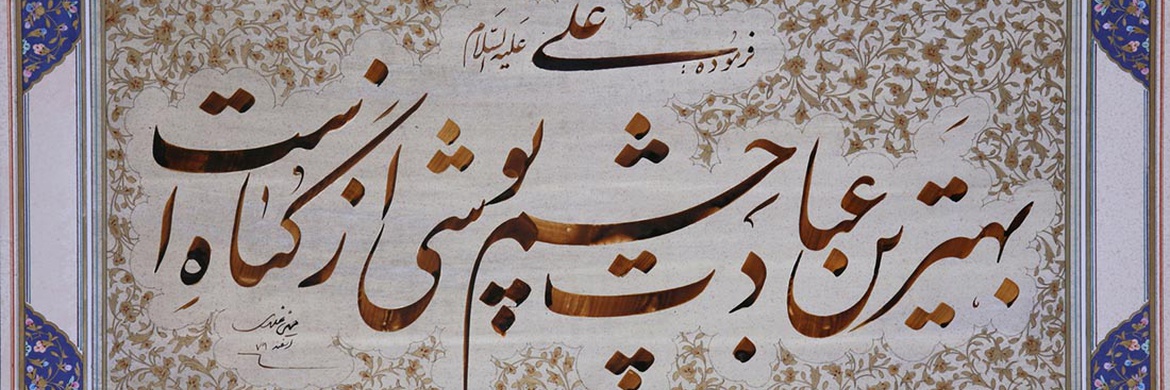 فرموده علی علیه السلام
بهترین عبادت چشم پوشی از گناه است
اسفند ۷۱